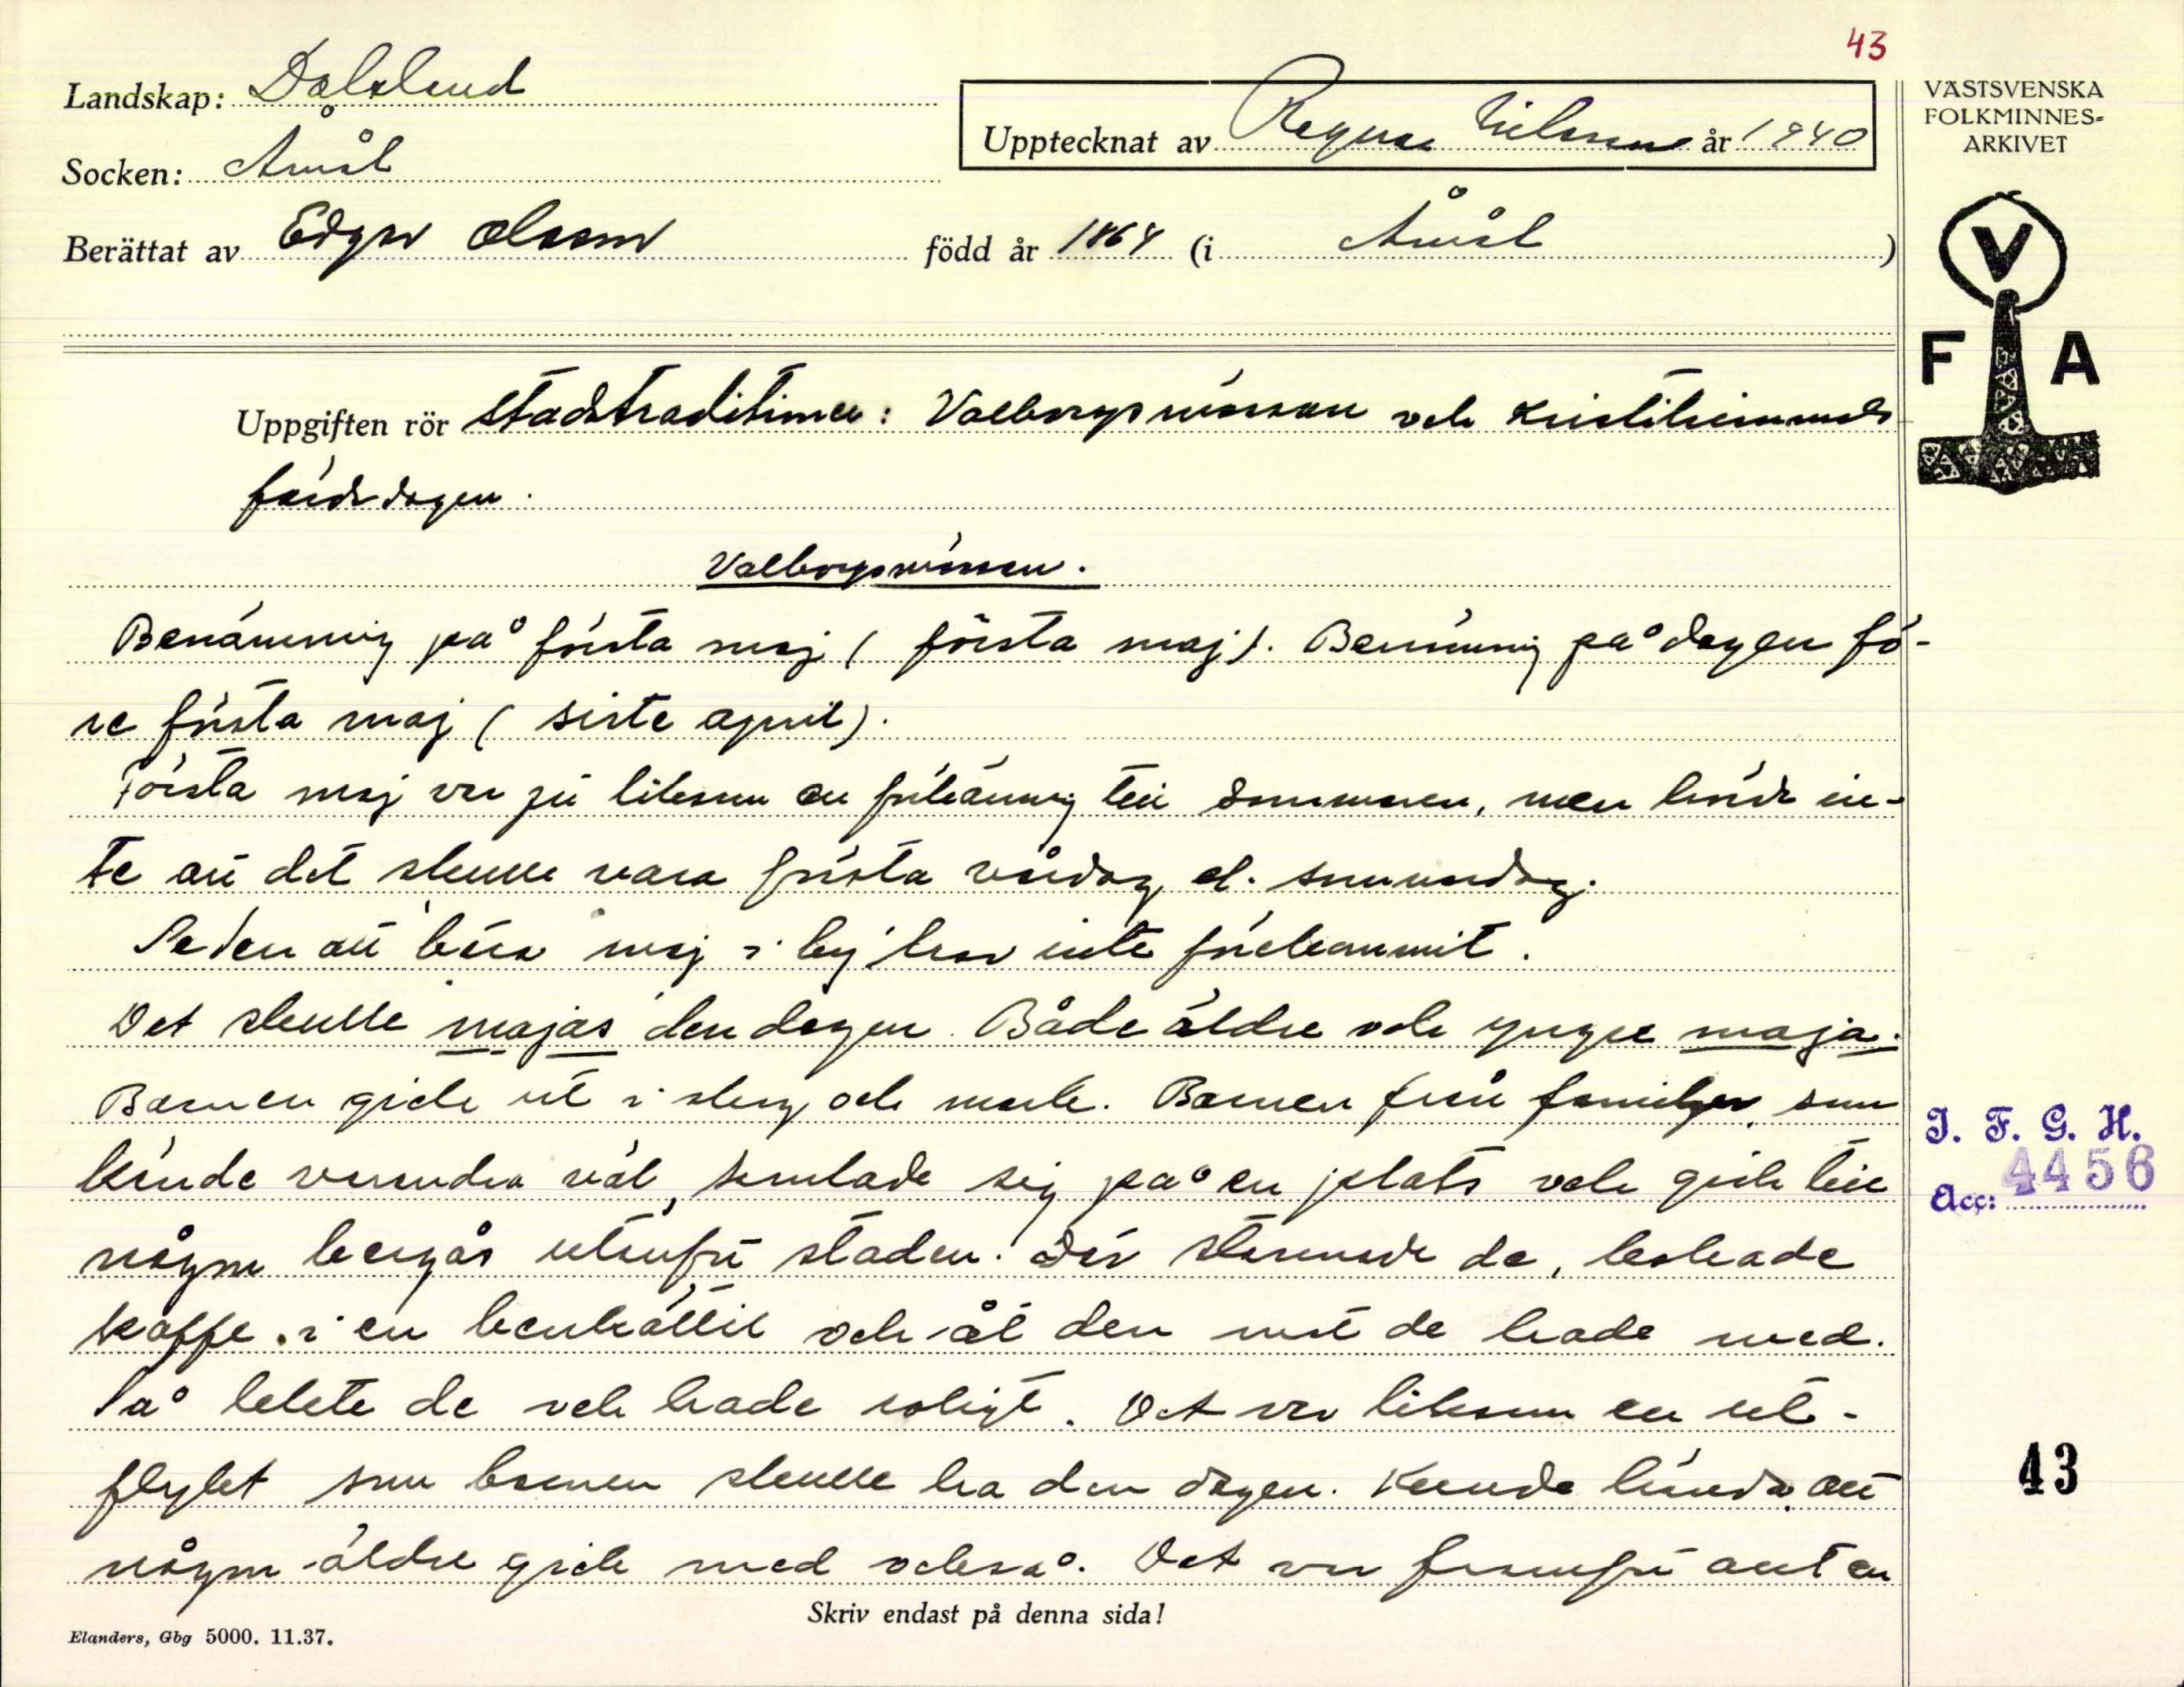 43
Landskap: Dalsland
Upptecknat av Ragnar Nilsson år 1940
VÄSTSVENSKA
FOLKMINNES-
ARKIVET
Socken: Åmål
Berättat av Edgar Olsson född år 1864 (i Åmål)
V
F A
Uppgiften rör Stadstraditioner: Valborgsmässan och Kristihimmels
färdsdagen.
Valborgsmässan.
Benämning på första maj (första maj). Benämning på dagen fö-
re första maj (siste april).
Första maj var ju liksom en förbäning till sommaren, men hörde in-
te att det skulle vara första vårdag el. sommardag.
Seden att bära maj i by har inte förekommit.
Det skulle majas den dagen. Både äldre och yngre maja.
Barnen gick ut i skog och mark. Barnen från familjer, som
kände varandra väl, samlade sig på en plats och gick till
någon bergås utanför staden. Där stannade de, kokade
kaffe i en kaffekittel och åt den mat de hade med.
Så lekte de och hade roligt. Det var liksom en ut-
flykt som barnen skulle ha den dagen. Kunde hända att
någon äldre gick med också. Det var framför allt en
I. F. G. H.
Acc: 4456
43
Skriv endast på denna sida!
Elanders, Gbg 5000. 11.37.